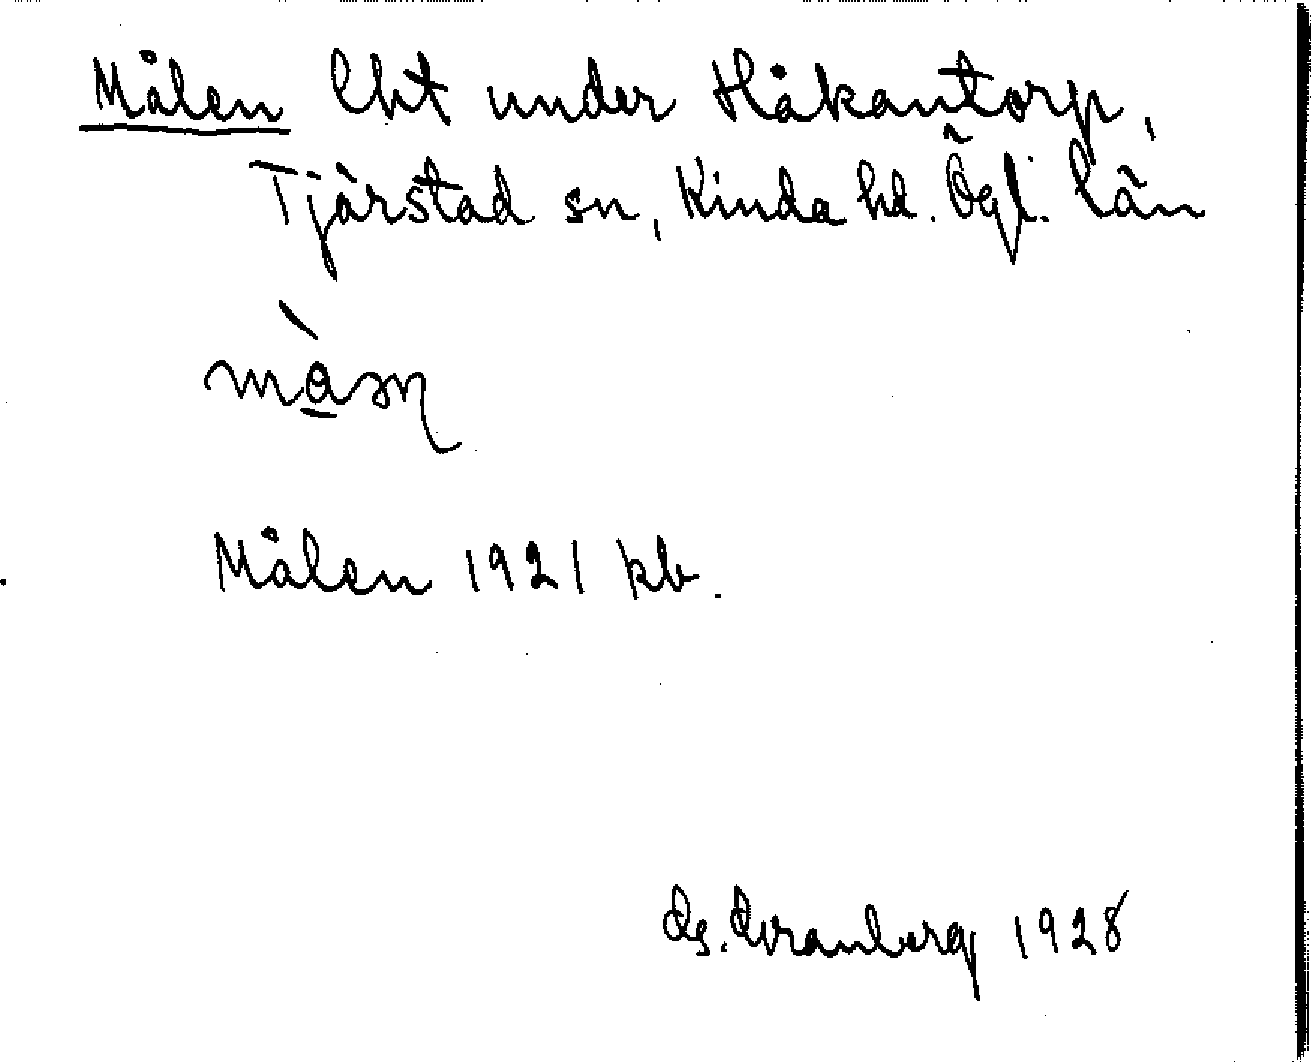 Målen lht under Håkantorp,
Tjärstad sn, Kinda hd. Ögl. län
Målen 1921 kb.
Gs. Granberg 1928